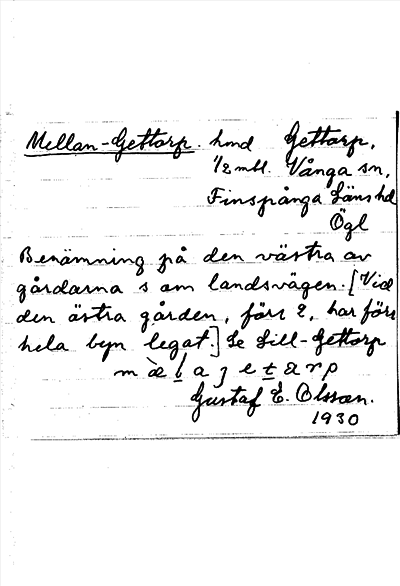 Mellan-Gettorp. hmd Gettorp,
1/2 mtl. Vånga sn,
Finspånga Läns hd
Ögl
Benämning på den västra av
gårdarna s om landsvägen. [Vid
den östra gården, förr 2, har förr
hela byn legat.] Se Lill-Gettorp
Gustaf E. Olsson.
1930